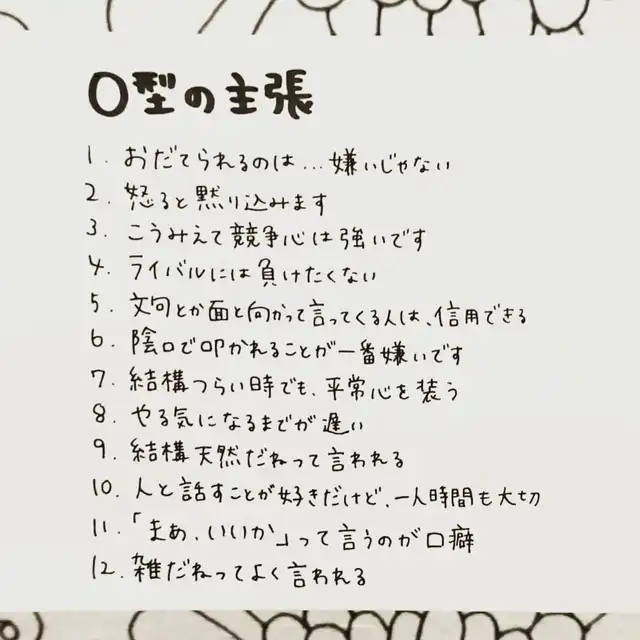 O型の主張
1. おだてられるのは…嫌いじゃない
2. 怒ると黙り込みます
3. こうみえて競争心は強いです
4. ライバルには負けたくない
5. 文句とか面と向かって言ってくる人は、信用できる
6. 陰口で叩かれることが一番嫌いです
7. 結構つらい時でも、平常心を装う
8. やる気になるまでが遅い
9. 結構天然だねって言われる
10. 人と話すことが好きだけど、一人時間も大切
11. 「まあ、いいか」って言うのが口癖
12. 雑だねってよく言われる